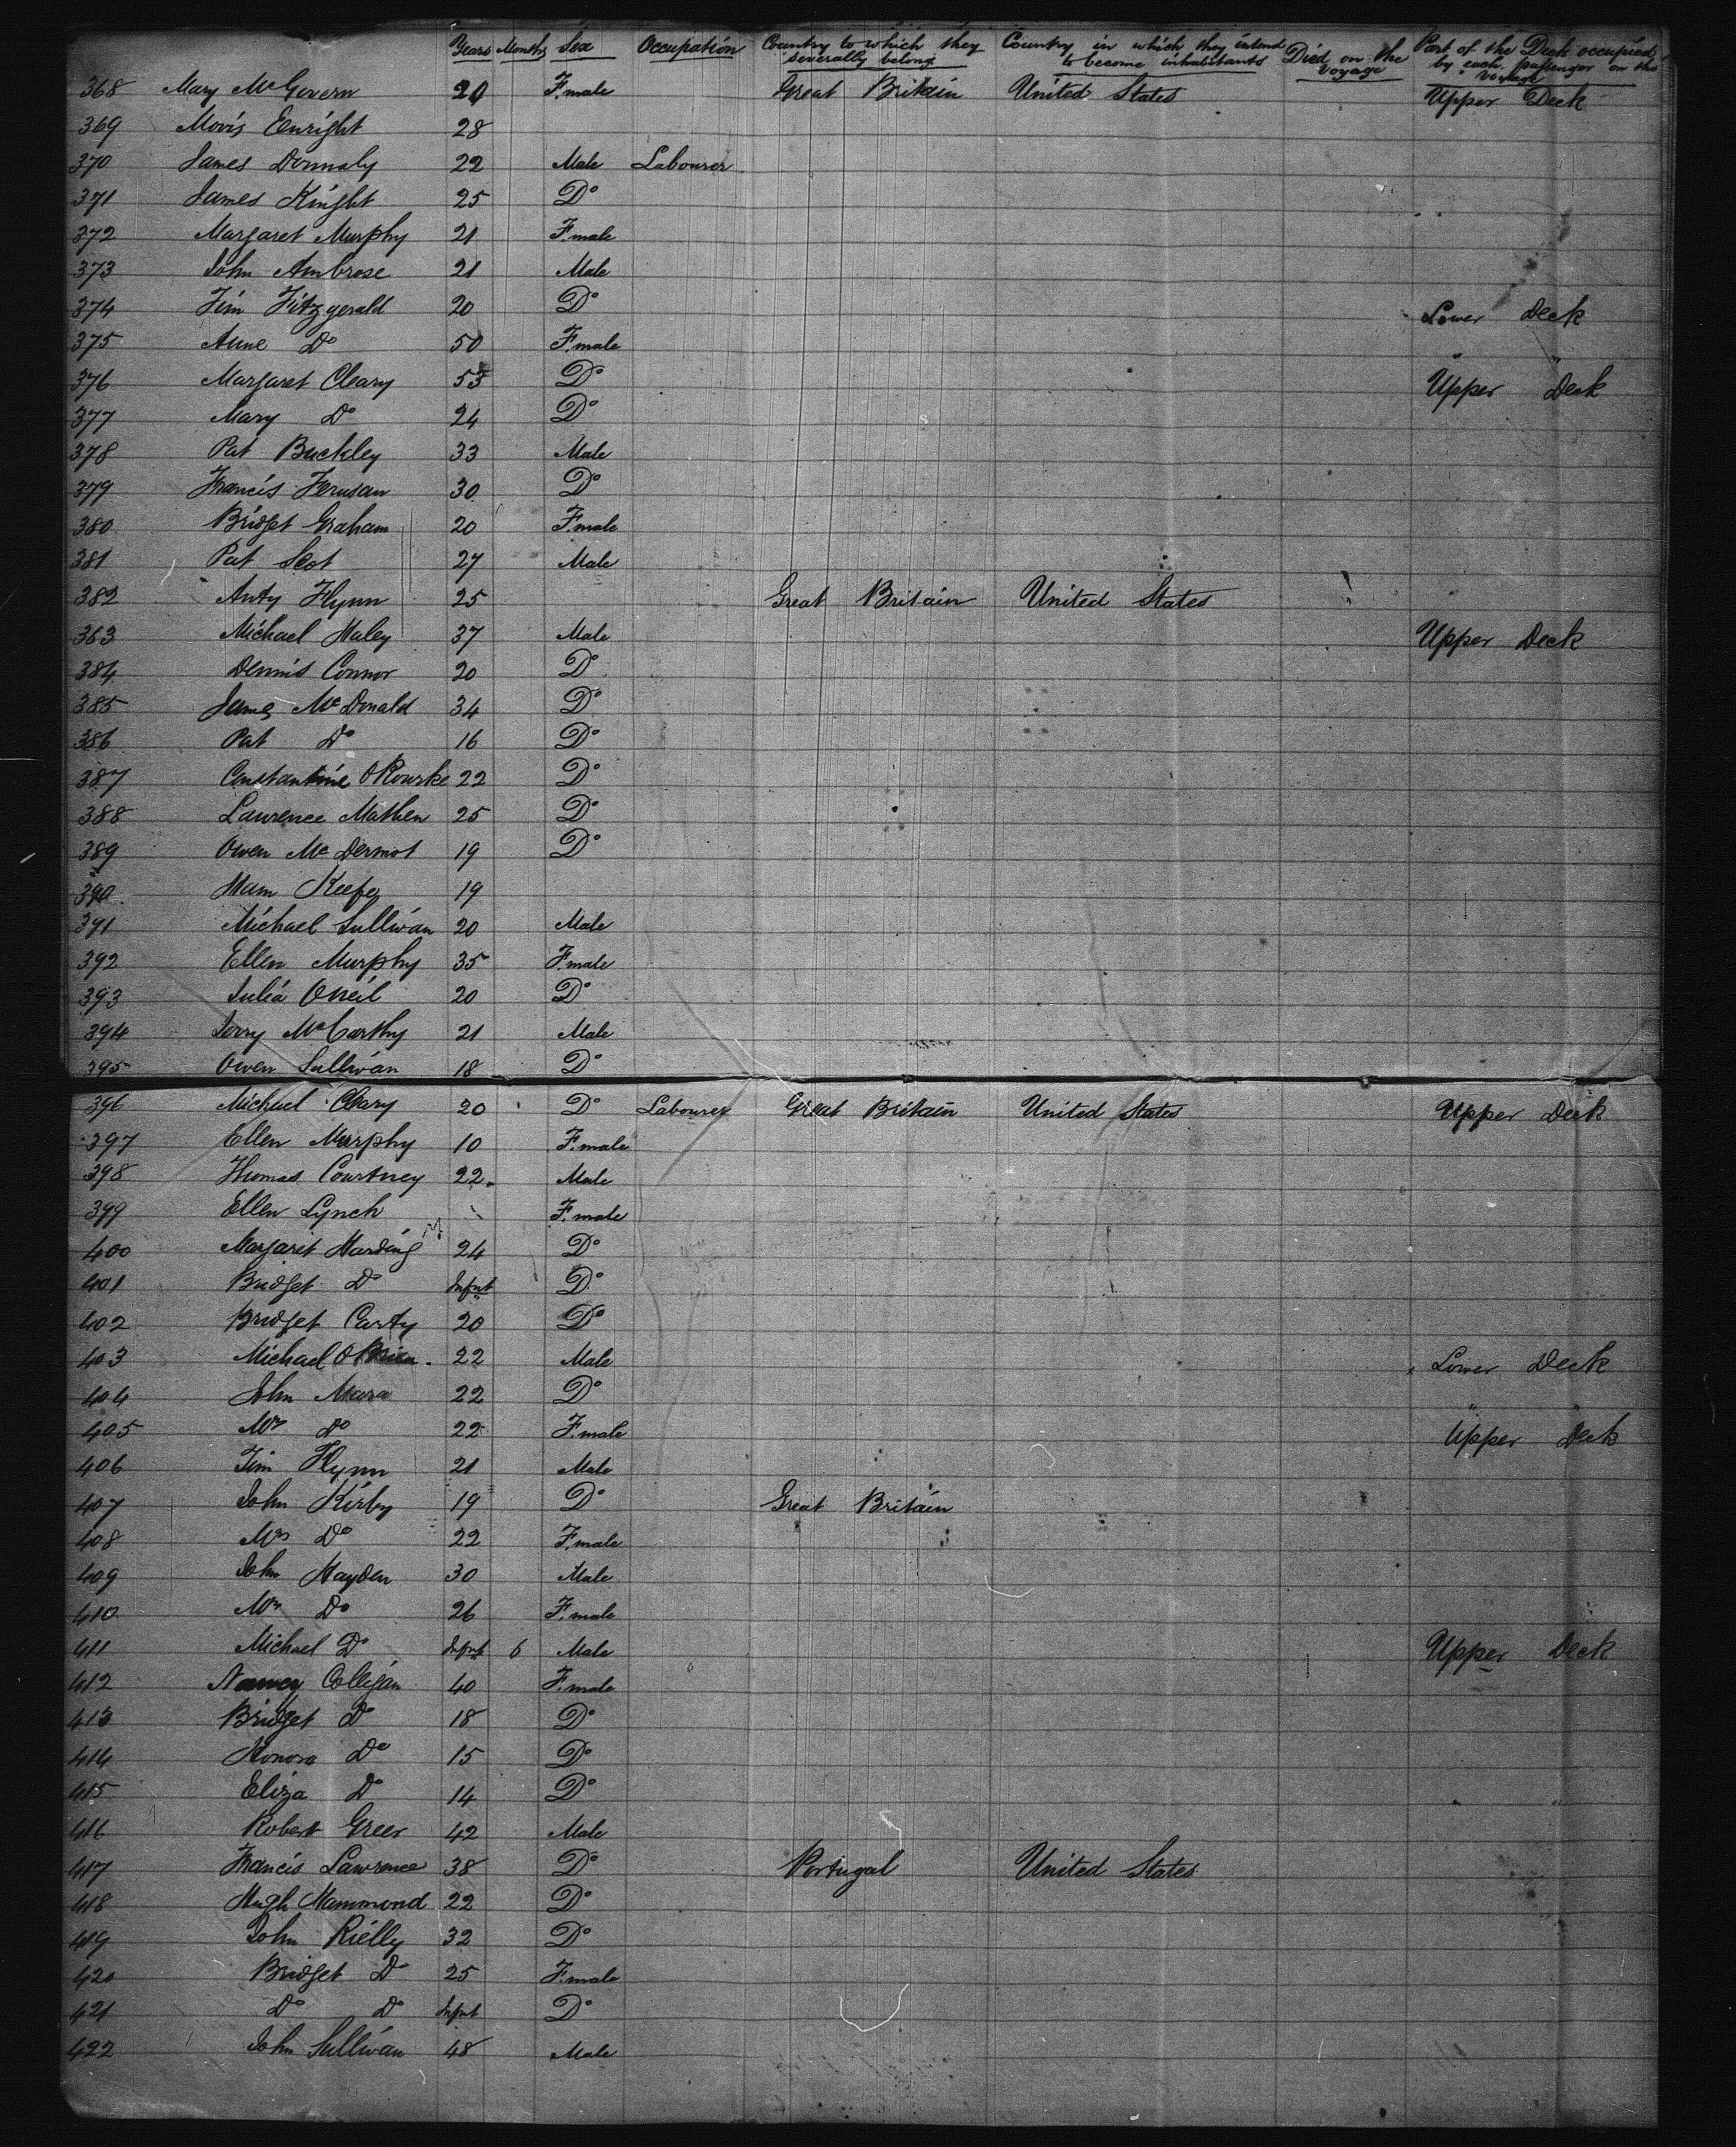 Years Months Sex Occupation Country to which they severally belong Country in which they intend to become inhabitants Died on the Voyage Part of the Deck occupied by each passenger on the Voyage
368 Mary McGovern 20 F.male Great Britain United States Upper Deck
369 Enright 28
370 James Donnaly 22 Male Labourer
371 James Kinght 25 Do
372 Margaret Murphy 21 F.male
373 John Ambrose 21 Male
374 Tim Fitzgerald 20 Do Lower Deck
375 Anne Do 50 F.male " "
376 Margaret Cleary 53 Do Upper Deck
377 Mary Do 24 Do
378 Pat Buckley 33 Male
379 Francis 30 Do
380 Bridget Graham 20 F.male
381 Pat Scot 27 Male
382 Anty Flynn 25 Great Britain United States
383 Michael Haley 37 Male Upper Deck
384 Dennis Connor 20 Do
385 James McDonald 34 Do
386 Pat Do 16 Do
387 Constantine ORourke 22 Do
388 Lawrence Mathen 25 Do
389 Owen McDermot 19 Do
390 Keefe 19
391 Michael Sullivan 20 Male
392 Ellen Murphy 35 F.male
393 Julia Oneil 20 Do
394 Jerry McCarthy 21 Male
395 Owen Sullivan 18 Do
396 Michael Cleary 20 Do Labourer Great Britain United States Upper Deck
397 Ellen Murphy 10 F.male
398 Thomas Courtney 22 Male
399 Ellen Lynch F.male
400 Margaret Harding 24 Do
401 Bridget Do Infnt Do
402 Bridget Carty 20 Do
403 Michael OBrien 22 Male Lower Deck
404 John Mara 22 Do " "
405 Mrs Do 22 F.male Upper Deck
406 Tim Flynn 21 Male
407 John Kirby 19 Do Great Britain
408 Mrs Do 22 F.male
409 John Hayden 30 Male
410 Mrs Do 26 F.male
411 Michael Do Infnt 6 Male Upper Deck
412 Nancy Colligan 40 F.male
413 Bridget Do 18 Do
414 Honora Do 15 Do
415 Eliza Do 14 Do
416 Robert Greer 42 Male
417 Francis Lawrence 38 Do Portugal United States
418 Hugh Hammond 22 Do
419 John Rielly 32 Do
420 Bridget Do 25 F.male
421 Do Do Infnt Do
422 John Sullivan 48 Male